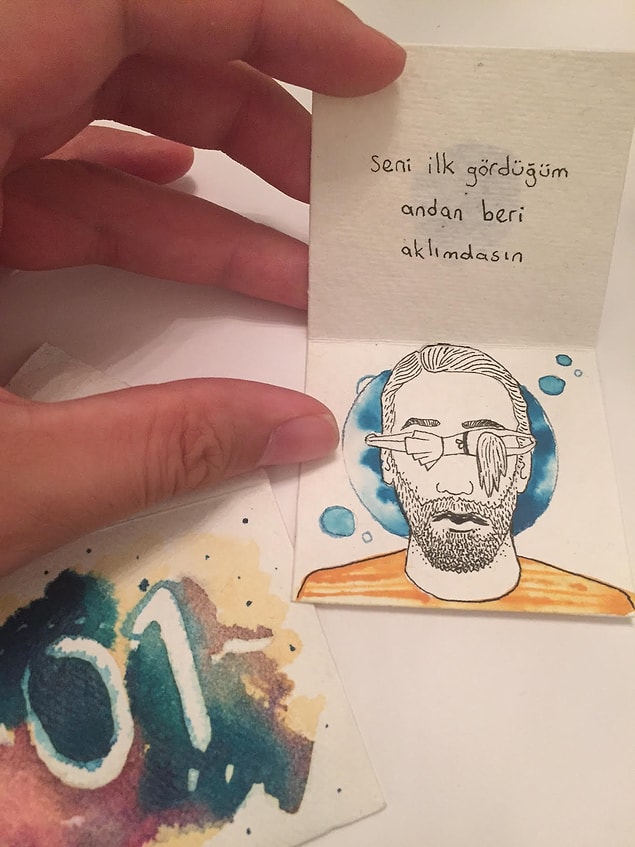 Seni ilk gördüğüm
andan beri
aklımdasın
01-